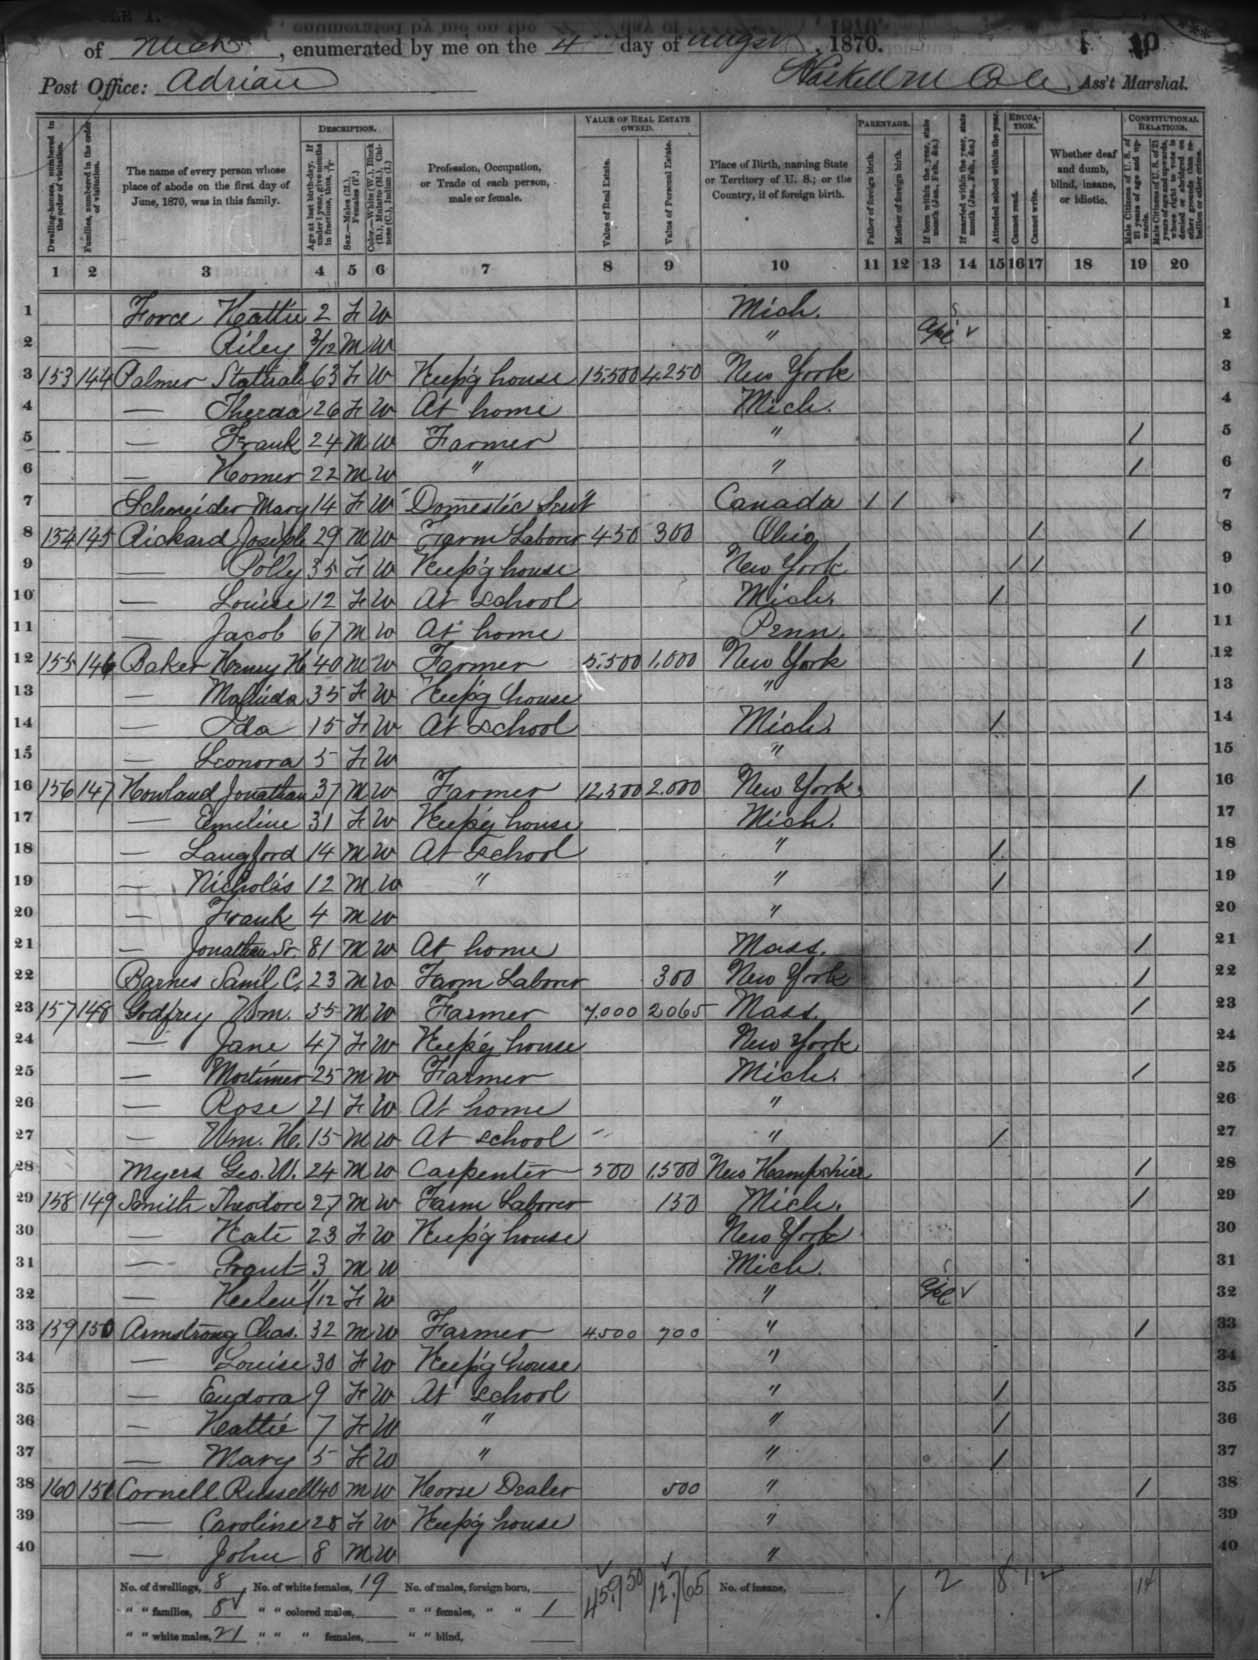 of Mich, enumerated by me on the 4 day of Augst, 1870.
Post Office: Adrian Ass't Marshal.
Dwelling-houses, numbered in the order of visitation.
Families, numbered in the order of visitation.
The name of every person whose place of abode on the first day of June, 1870, was in this family.
DESCRIPTION.
Age at last birth-day. If under 1 year, give months in fractions, thus, 3/12
Sex.—Males (M.), Females (F.)
Color.—White (W.), Black (B.), Mulatto (M.), Chinese (C.), Indian (I.)
Profession, Occupation, or Trade of each person, male or female.
VALUE OF REAL ESTATE OWNED.
Value of Real Estate.
Value of Personal Estate.
Place of Birth, naming State or Territory of U. S.; or the Country, if of foreign birth.
PARENTAGE.
Father of foreign birth.
Mother of foreign birth.
If born within the year, state month (Jan., Feb., &c.)
If married within the year, state month (Jan., Feb., &c.)
EDUCATION.
Attended school within the year.
Cannot read.
Cannot write.
Whether deaf and dumb, blind, insane, or idiotic.
CONSTITUTIONAL RELATIONS.
Male Citizens of U. S. of 21 years of age and upwards.
Male Citizens of U. S. of 21 years of age and upwards, whose right to vote is denied or abridged on other grounds than rebellion or other crime.
1 2 3 4 5 6 7 8 9 10 11 12 13 14 15 16 17 18 19 20
1 Force Hattie 2 F W Mich. 1
2 — Riley 2/12 M W " Apl ✓ 2
3 153 144 Palmer 63 F W Keep'g house 15,500 4,250 New York 3
4 — 26 F W At home Mich. 4
5 — Frank 24 M W Farmer " / 5
6 — Homer 22 M W " " / 6
7 Schneider Mary 14 F W Domestic Serv't Canada / / 7
8 154 145 Rickard Joseph 29 M W Farm Laborer 450 300 Ohio / / 8
9 — Polly 35 F W Keep'g house New York / / 9
10 — Louise 12 F W At School Mich. / 10
11 — Jacob 67 M W At home Penn. / 11
12 155 146 Baker Henry H 40 M W Farmer 5,500 1,000 New York / 12
13 — Malinda 35 F W Keep'g house " 13
14 — Ida 15 F W At School Mich. / 14
15 — Leonora 5 F W " 15
16 156 147 Howland Jonathan 37 M W Farmer 12,500 2,000 New York / 16
17 — Emeline 31 F W Keep'g house Mich. 17
18 — Langford 14 M W At School " / 18
19 — Nicholas 12 M W " " / 19
20 — Frank 4 M W " 20
21 — Jonathan Sr. 81 M W At home Mass. / 21
22 Barnes Saml. C. 23 M W Farm Laborer 300 New York / 22
23 157 148 Godfrey Wm. 55 M W Farmer 7,000 2065 Mass. / 23
24 — Jane 47 F W Keep'g house New York 24
25 — Mortimer 25 M W Farmer Mich. / 25
26 — Rose 21 F W At home " 26
27 — Wm. H. 15 M W At School " / 27
28 Myers Geo. W. 24 M W Carpenter 500 1,500 New Hampshire / 28
29 158 149 Smith Theodore 27 M W Farm Laborer 150 Mich. / 29
30 — Kate 23 F W Keep'g house New York 30
31 — Grant 3 M W Mich. 31
32 — Helen 1/12 F W " ✓ 32
33 159 150 Armstrong Chas. 32 M W Farmer 4500 700 " / 33
34 — Louise 30 F W Keep'g house " 34
35 — Eudora 9 F W At School " / 35
36 — Hattie 7 F W " " / 36
37 — Mary 5 F W " " / 37
38 160 151 Cornell Russell 40 M W Horse Dealer 500 " / 38
39 — Caroline 28 F W Keep'g house " 39
40 — John 8 M W " 40
No. of dwellings, 8 No. of white females, 19 No. of males, foreign born, 45,950 12,765 No. of insane, 1 2 8 1 2 14
" " families, 8 " " colored males, " " females, " " 1
" " white males, 21 " " " females, " " blind,